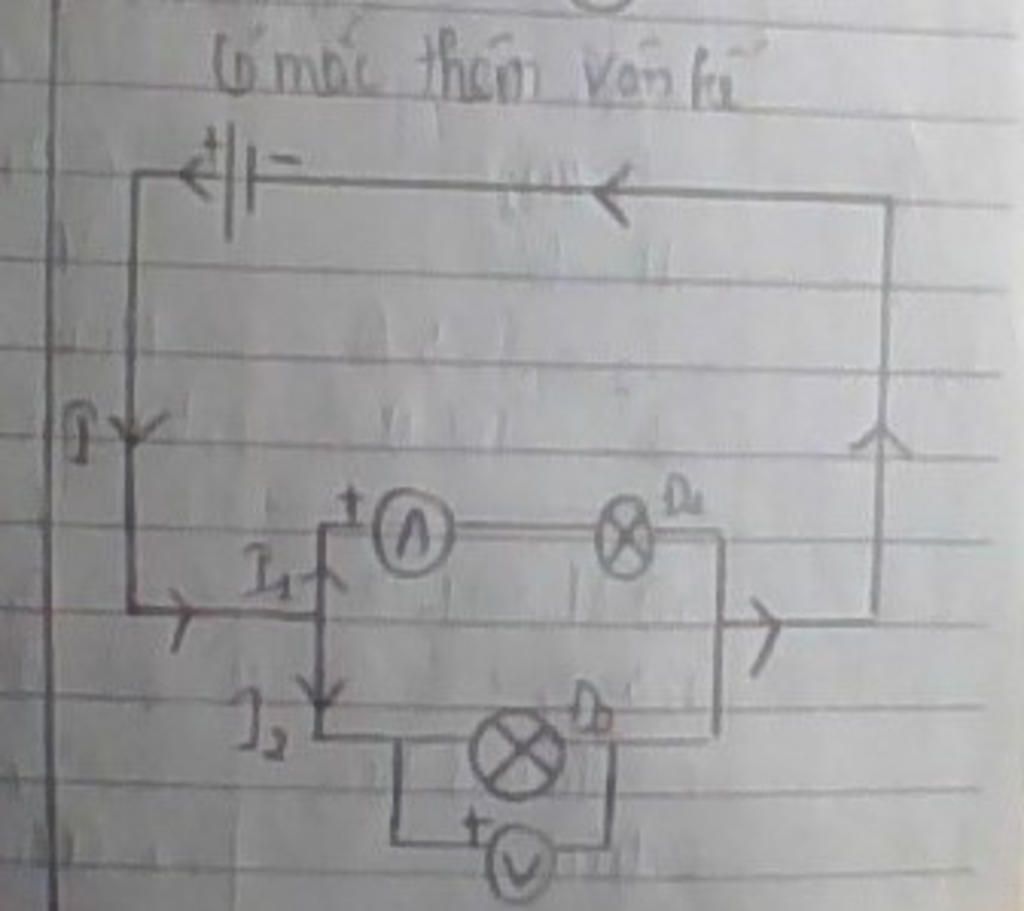 Có mắc thêm vôn kế
+ -
I
+ A Đ1
I1
I2 Đ2
+
V